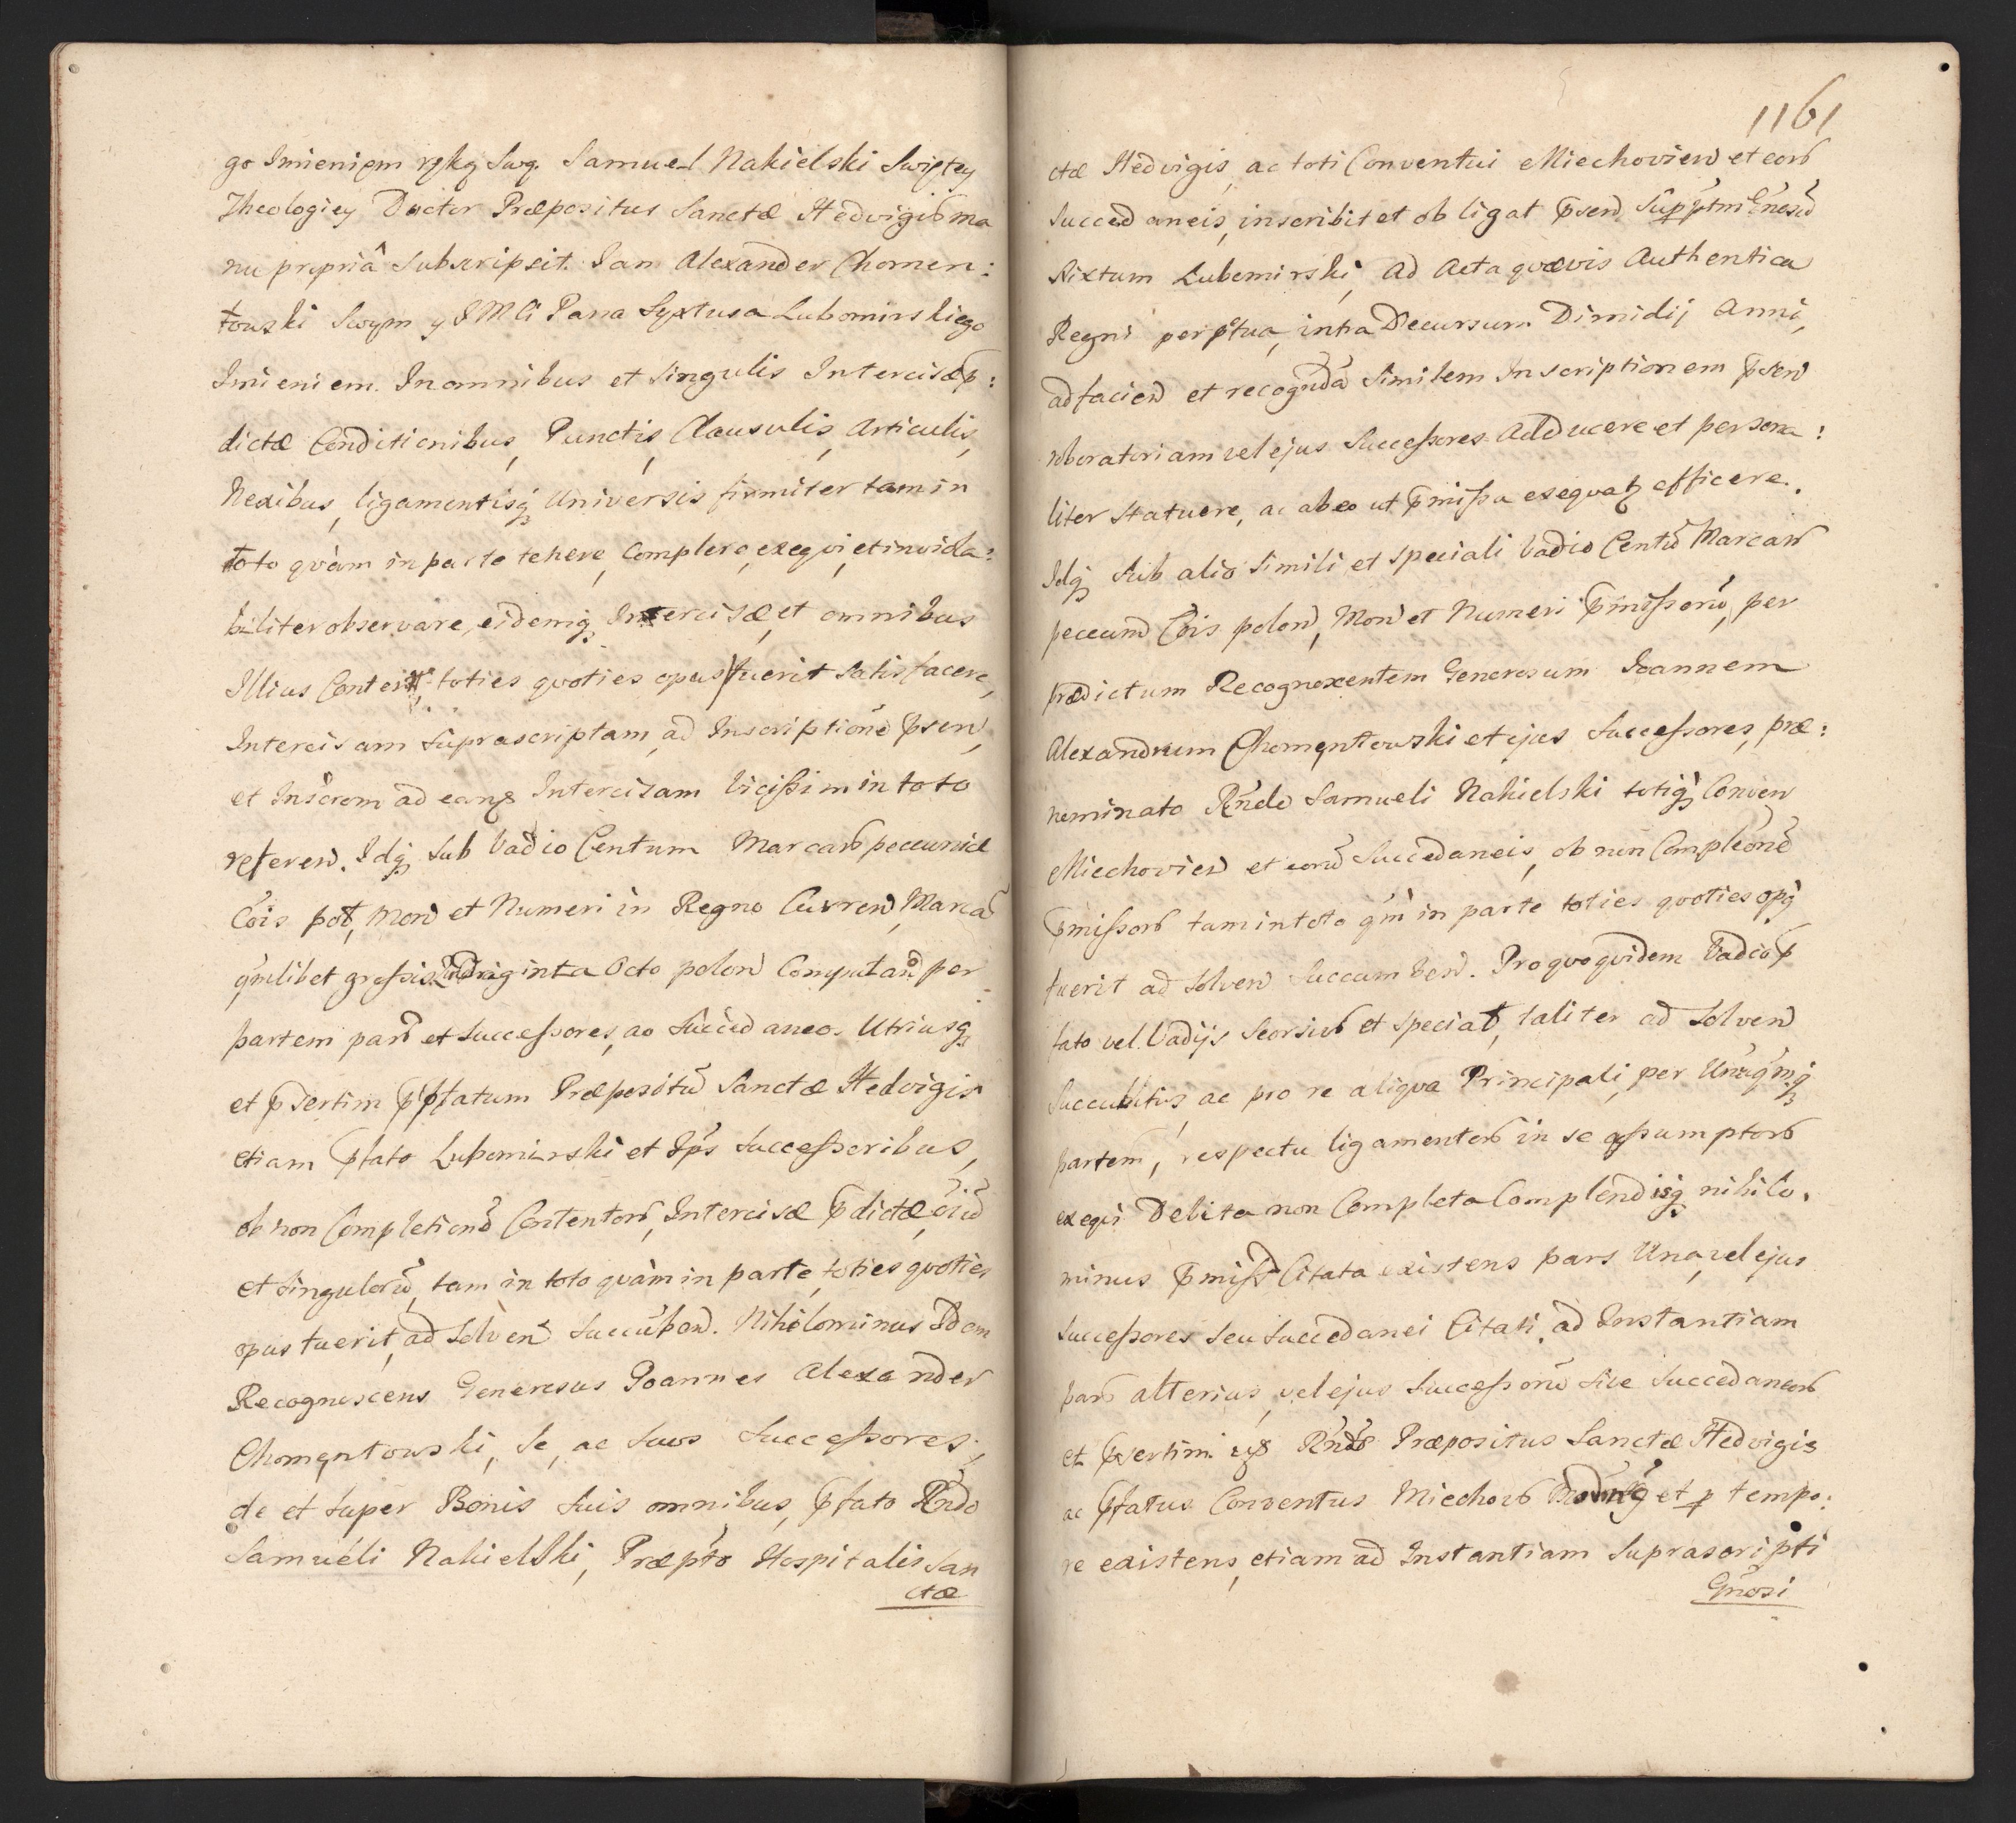 go Imieniem ręką swą. Samuel Nakielski Swiętey
Theologiey Doctor Præpositus Sanctæ Hedvigis ma
nu propriâ subscripsit. Jan Alexander Chomen:
towski Swym y JMCi Pana Syxtusa Lubomirskiego
Imieniem. In omnibus et singulis Intercisæ p̄:
dictæ Conditionibus, Punctis, Clausulis, Articulis,
Nexibus, ligamentisq́ Universis firmiter tam in
toto qvàm in parte tenere, Complere, exeqvi, et inviola:
biliter observare, eidemq́ Intercisæ, et omnibus
Illius Conten̄, toties qvoties opus fuerit satisfacere,
Intercisam supra scriptam, ad Inscriptionē p̄sen̄,
et Inscrem ad eand Intercisam vicissim in toto
referen̄. Idq́ sub Vadio Centum Marcar̄ pecuniæ
Cōis pol, Mon̄ et Numeri in Regno Curren̄, Marca
qm̄libet grossis qvadraginta Octo polon̄ Computan̄ per
partem par̄ et Successores, ac Succedaneos Utriusq́
et p̄sertim p̄fatum Præpositū Sanctæ Hedvigis
etiam p̄fato Lubomirski et Ip̄s Successoribus,
ob non Completionē Contentor̄, Intercisæ p̄dictæ, oīu
et singulorū, tam in toto qvàm in parte, toties qvoties
opus fuerit, ad solven̄ Succūben̄. Nihilominus Idem
Recognoscens Generosus Joannes Alexander
Chomęntowski, Se, ac Suos Successores,
de et super Bonis suis omnibus, p̄fato Rn̄do
Samuéli Nakielski, Præpt̄o Hospitalis San
ctæ
1161
ctæ Hedvigis, ac toti Conventui Miechovien̄ et eor̄
Succedaneis, inscribit et obligat p̄sen̄ Gn̄esū
Sixtum Lubomirski, ad Acta qvævis Authentica
Regni perp̄tua, intra Decursum Dimidij Anni,
ad facien̄ et recogn̄da Similem Inscriptionem p̄sen̄
roboratoriam vel ejus Successores Adducere et persona:
liter statuere, ac ab eo ut p̄missa exeqvat̄ efficere.
Idq́ sub alio simili et speciali Vadio Centū Marcar̄
pecun̄ Cōis polon̄, Mon̄ et Numeri p̄missorū, per
prædictum Recognoscentem Generosum Joannem
Alexandrum Chomęntowski et ejus Successores, præ:
nominato Rn̄do Samueli Nakielski totiq́ Conven̄
Miechovien̄ et eorū Succedaneis, ob non Completionē
p̄missor̄ tam in toto qm̄ in parte toties qvoties op̄
fuerit ad solven̄ Succumben̄. Pro qvo qvidem Vadio p̄
fato vel Vadijs seorsiv̄ et special, taliter ad solven̄
Succubitus, ac pro re aliqva Principali, per Unāqm̄q́
partem, respectu ligamentor̄ in se assumptor̄
exeqvi Debita non Completa Complendisq́ nihilo.
minus p̄miss̄ Citata existens pars Una, vel ejus
Successores seu Succedanei Citati, ad Instantiam
par̄ alterius, vel ejus Successorū sive Succedaneor̄
et p̄sertim Rn̄ds Præpositus Sanctæ Hedvigis
ac p̄fatus Conventus Miechov̄ et p tempo:
re existens, etiam ad Instantiam suprascripti
Gn̄osi